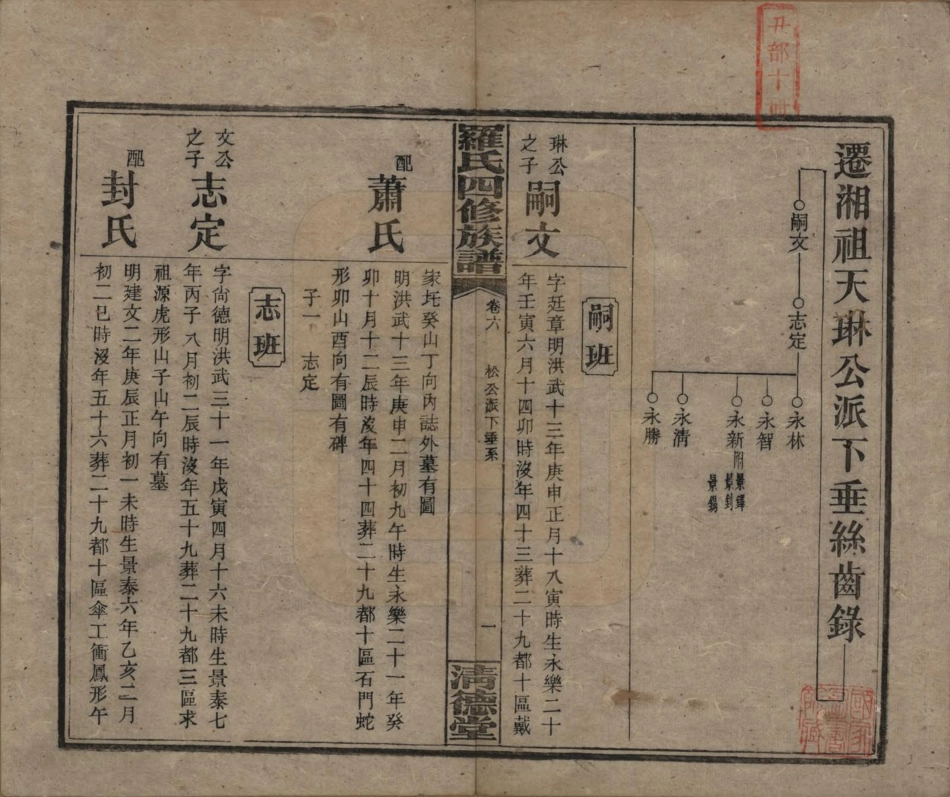 遷湘祖天琳公派下垂絲齒錄
嗣文
志定
永林
永智
永新
附
永清
永勝
嗣班
琳公之子
嗣文
字莛章明洪武十三年庚申正月十八寅時生永樂二十
年壬寅六月十四卯時沒年四十三葬二十九都十區戴
羅氏四修族譜
卷六
松公派下垂系
一
清德堂
家坵癸山丁向內誌外墓有圖
配
蕭氏
明洪武十三年庚申二月初九午時生永樂二十一年癸
卯十月十二辰時沒年四十四葬二十九都十區石門蛇
形卯山酉向有圖有碑
子一 志定
志班
文公之子
志定
字尚德明洪武三十一年戊寅四月十六未時生景泰七
年丙子八月初二辰時沒年五十九葬二十九都三區求
祖源虎形山子山午向有墓
配
封氏
明建文二年庚辰正月初一未時生景泰六年乙亥二月
初二巳時沒年五十六葬二十九都十區傘工衝鳳形午